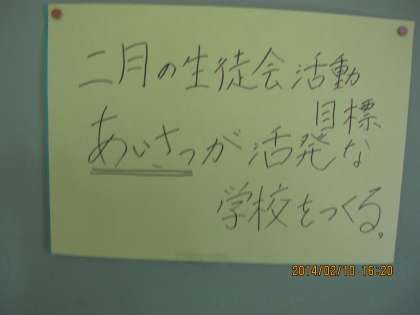 二月の生徒会活動
目標
あいさつが活発な
学校をつくる。
2014/02/10 16:20